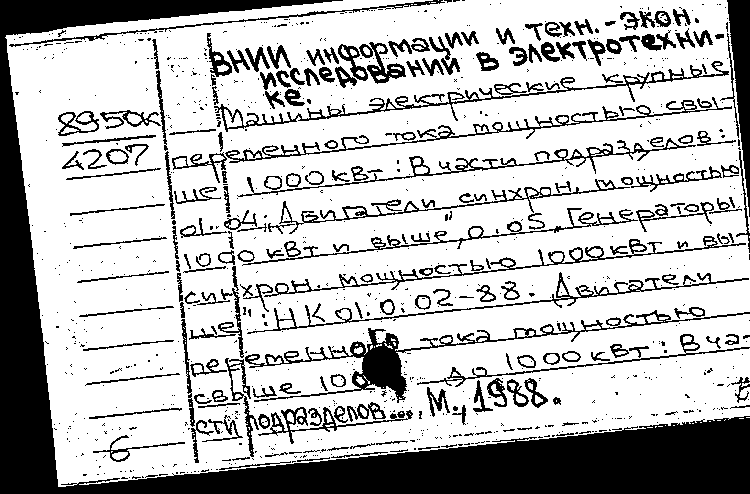 ВНИИ информации и техн.-экон.
исследований в электротехни-
ке.
8950к
4207
Машины электрические крупные
переменного тока мощностью свы-
ше 1000 кВт: В части подразделов:
01.04 "Двигатели синхрон. мощностью
1000 кВт и выше", 0.05 "Генераторы
синхрон. мощностью 1000 кВт и вы-
ше": НК 01.0.02-88. Двигатели
переменного тока мощностью
свыше 100 до 1000 кВт: В час-
сти подразделов..., М., 1988.
6